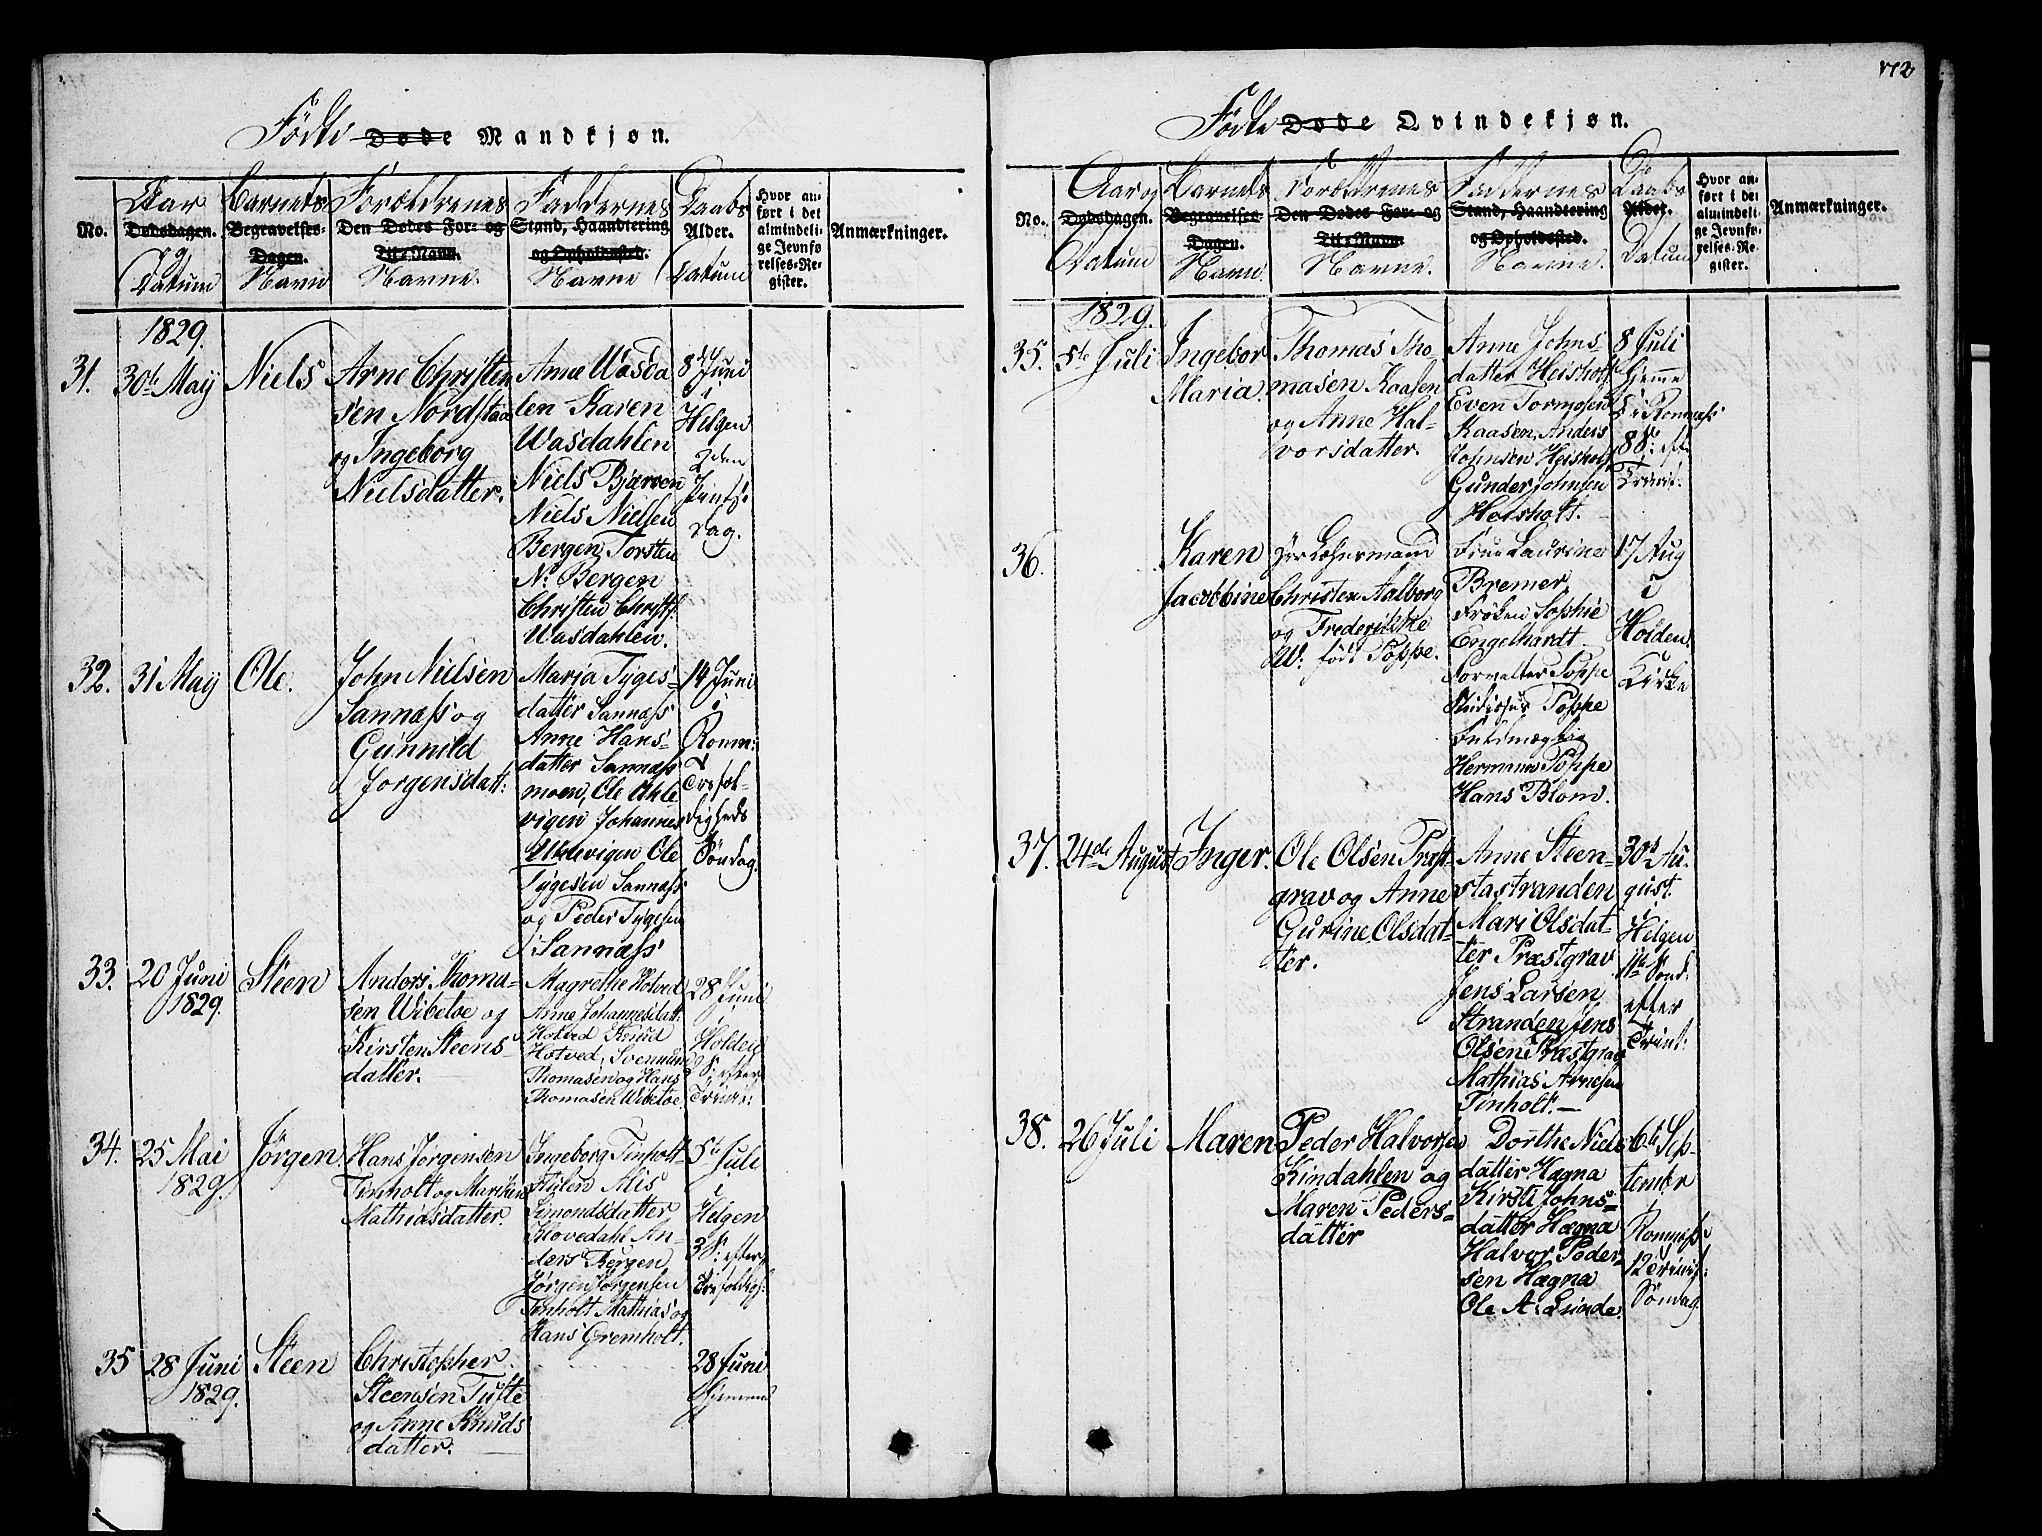 Födte Døde Mandkjøn.
No.
Aar og
Dødsdagen.
Datum
Barnets
Begravelses-
Dagen.
Navn
Forældrenes
Den Dødes For- og
Til-Navn.
Navne.
Faddernes
Stand, Haandtering
og Opholdssted.
Navne
Daabs
Alder.
Datum
Hvor an-
ført i det
almindeli-
ge Jevnfø-
relses-Re-
gister.
Anmærkninger.
1829.
31.
30te May
Niels
Arne Christen
sen Nordstaa
og Ingeborg
Nielsdatter.
Anne Wasda
len Karen
Wasdahlen
Niels Bjærven
Niels Nielsen
Bergen, Torsten
N. Bergen
Christen Christs:
Wasdahlen.
8de Juni
i
Helgen
2den
Pints:
dag.
32.
31 May
Ole.
John Nielsen
Sannæss og
Gunnild
Jorgensdatt:
Maria Tyges-
datter Sannæss
Anne Hans-
datter Sannæss
moen, Ole Uhle
vigen Johannes
Uhlevigen, Ole
Tygesen Sannæss
og Peder Tygesen
Sannæss
14 Juni
i
Romn:
Trefol-
digheds
Söndag.
33.
20 Juni
1829.
Steen
Anders Thoma-
sen Wibetoe og
Kirsten Steens-
datter.
Magrethe Hotved
Anne Johannesdatt.
Hotved Knud
Hotved, Svennund
Thomasen og Hans
Thomasen Wibetoe.
28 Juni
i
Holden
2 S: efter
Trinit:
34.
25 Mai
1829.
Jörgen
Hans Jørgensen
Tinholt og Mariken
Mathiasdatter.
Ingeborg Tinholt-
stulen Mis
Simondsdatter
Khovedahl An-
ders Bergen
Jörgen Jörgensen
Tinholt Mathias og
Hans Gremholt.
5te Juli
i
Helgen
3 S: efter
Trefoldigh:
35
28 Juni
1829.
Steen
Christopher
Steensen Tufte
og Anne Knuds
datter.
28 Juni
Hjemme
172
Födte Døde Qvindekjøn.
No.
Aar og
Dødsdagen.
Datum
Barnets
Begravelses-
Dagen.
Navn
Forældrenes
Den Dødes For- og
Til-Navn.
Navne.
Faddernes
Stand, Haandtering
og Opholdssted.
Navne.
Daabs
Alder.
Datum
Hvor an-
ført i det
almindeli-
ge Jevnfø-
relses-Re-
gister.
Anmærkninger.
1829.
35.
5te Juli
Ingebor
Maria.
Thomas Tho-
masen Kaasen
og Anne Hal-
vorsdatter.
Anne Johns-
datter Heisholt
Even Tormosen
Kaasen, Anders
Johnsen Heisholt
Gunder Johnsen
Heisholt.
8 Juli
Hjeme
i Romnæss
8 S: eft
Trinit:
36.
Karen
Jacobbine
Hr: Lehnsmand
Christen Aalborg
og Frederikke
W: født Poppe.
Frue Laurine
Bremer
Frøken Sophie
Engelhardt
Forvalter Poppe
Poppe
Hermans Poppe
Hans Blom.
17 Aug
i
Holden
Kirke
37.
24de August
Inger.
Ole Olsen Præst-
grav og Anne
Gurine Olsdat-
ter.
Anne Steen-
stastranden
Mari Olsdat-
ter Præstgrav
Jens Larsen
Stranden, Jens
Olsen Præstgrav
Mathias Arnesen
Tinholt.
30te Au-
gust.
i
Helgen
11te Sönd.
efter
Trint:
38.
26 Juli
Maren
Peder Halvorsen
Kindahlen og
Maren Peders-
datter
Dorthe Niels
datter Hægna
Kirsti Johns-
datter Hægna
Halvor Peder-
sen Hægna
Ole A. Lunde.
6te Sep-
tember
i
Romnæss
12 Trinit:
Söndag.